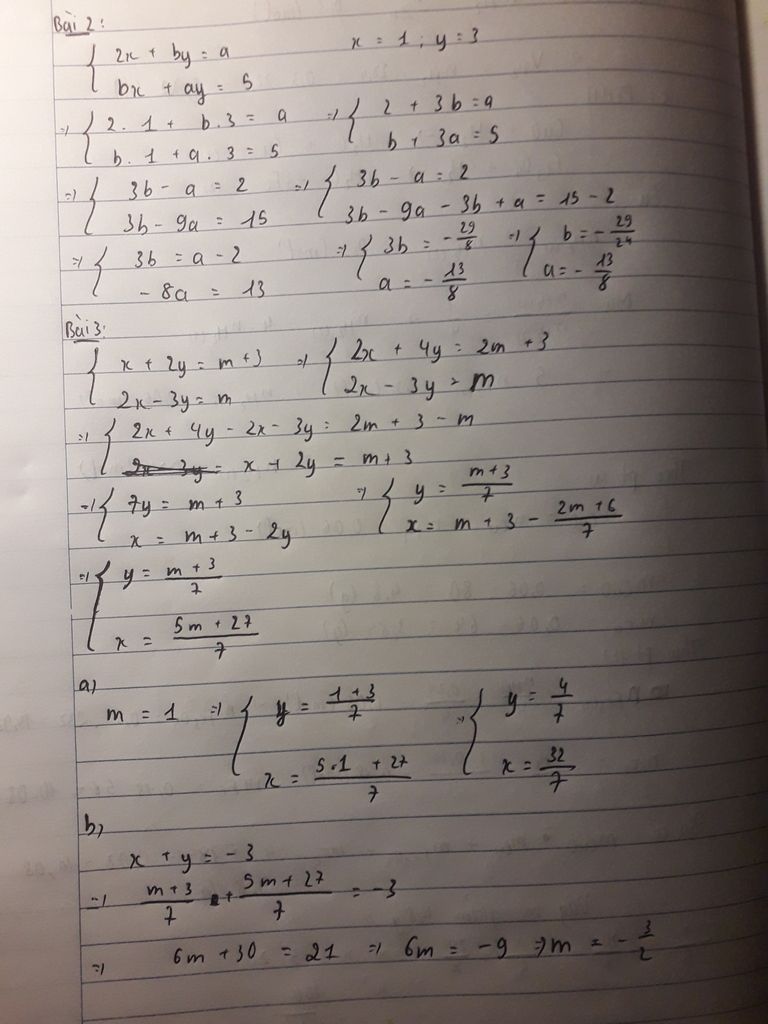 Bài 2:
{ 2x + by = a
bx + ay = 5 x = 1 ; y = 3
=> { 2. 1 + b. 3 = a
b. 1 + a. 3 = 5 => { 2 + 3b = a
b + 3a = 5
=> { 3b - a = 2
3b - 9a = 15 => { 3b - a = 2
3b - 9a - 3b + a = 15 - 2
=> { 3b = a - 2
- 8a = 13 => { 3b = - 29/8
a = - 13/8 => { b = - 29/24
a = - 13/8
Bài 3:
{ x + 2y = m + 3
2x - 3y = m => { 2x + 4y = 2m + 3
2x - 3y = m
=> { 2x + 4y - 2x - 3y = 2m + 3 - m
2x - 3y = x + 2y = m + 3
=> { 7y = m + 3
x = m + 3 - 2y => { y = m + 3/7
x = m + 3 - 2m + 6/7
=> { y = m + 3/7
x = 5m + 27/7
a)
m = 1 => { y = 1 + 3/7
x = 5.1 + 27/7 => { y = 4/7
x = 32/7
b)
x + y = - 3
=> m + 3/7 + 5m + 27/7 = -3
=> 6m + 30 = 21 => 6m = - 9 => m = - 3/2